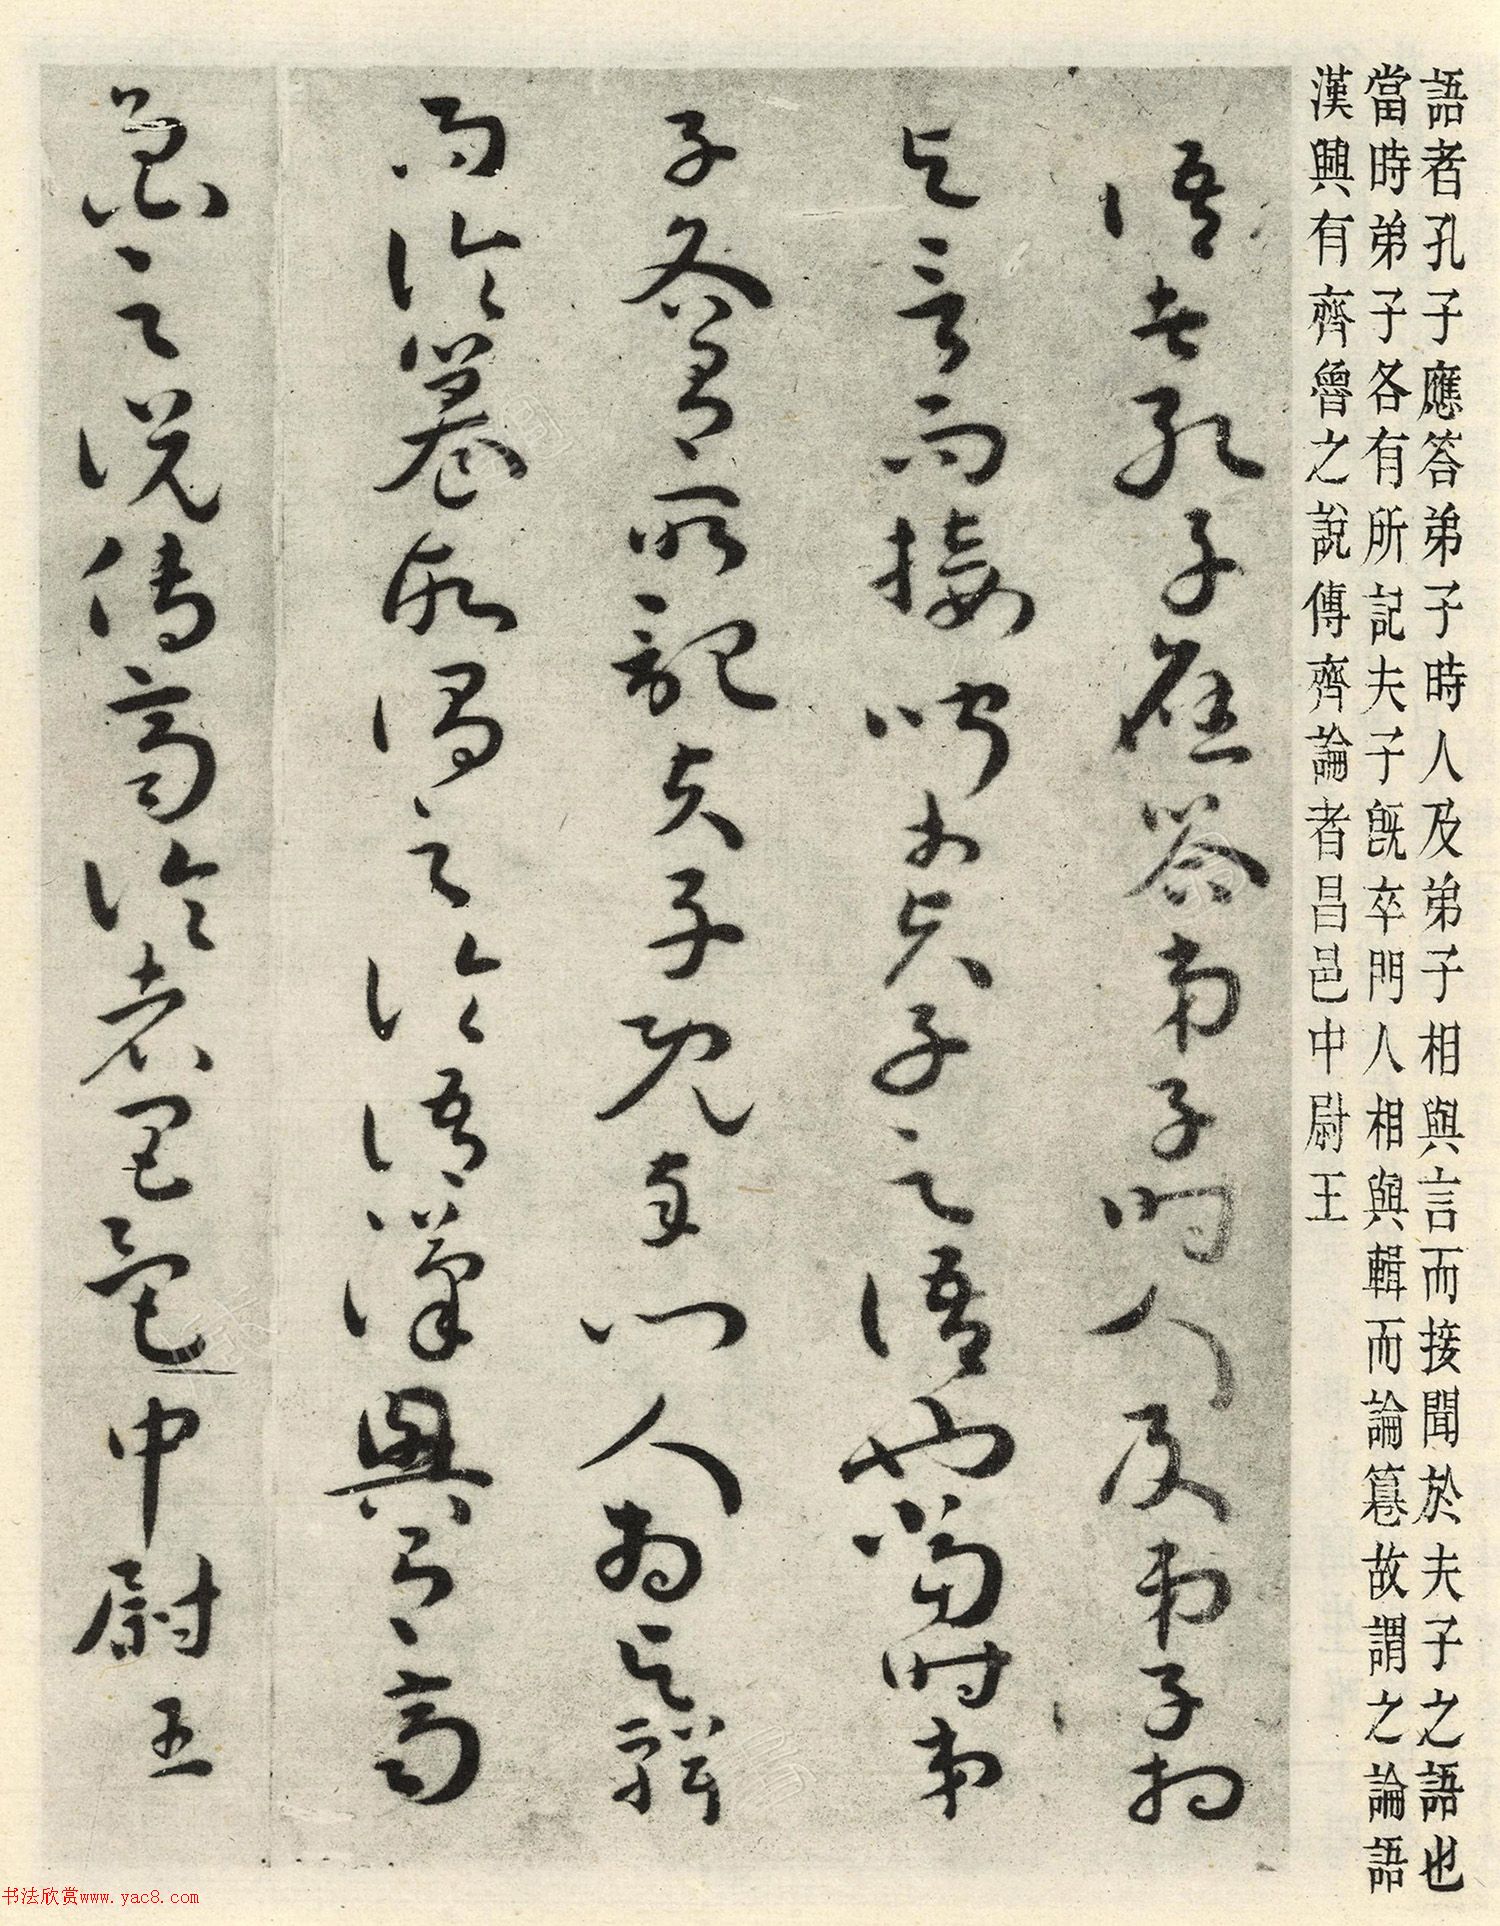 語者孔子應答弟子時人及弟子相與言而接聞於夫子之語也
當時弟子各有所記夫子既卒門人相與輯而論篹故謂之論語
漢興有齊魯之說傳齊論者昌邑中尉王
語者孔子應答弟子時人及弟子相
與言而接聞於夫子之語也當時弟
子各有所記夫子既卒門人相與輯
而論篹故謂之論語漢興有齊
魯之說傳齊論者昌邑中尉王
书法欣赏www.yac8.com